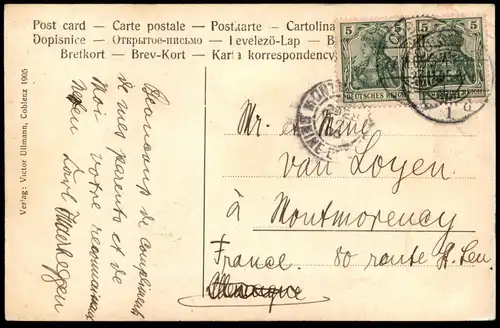 Post card – Carte postale – Postkarte – Cartolina
Dopisnice – Открытое-письмо – Levelezö-Lap – B
Brefkort – Brev-Kort – Karta korrespondency
5 5
DEUTSCHES REICH
Mr. et Mme.
van Loyen
à Montmorency
France. 80 route St. Leu.
Allemagne
Beaucoup de compliments
de mes parents et de
Moi votre reconnaissant
neveu
Verlag: Victor Ullmann, Coblenz 1905